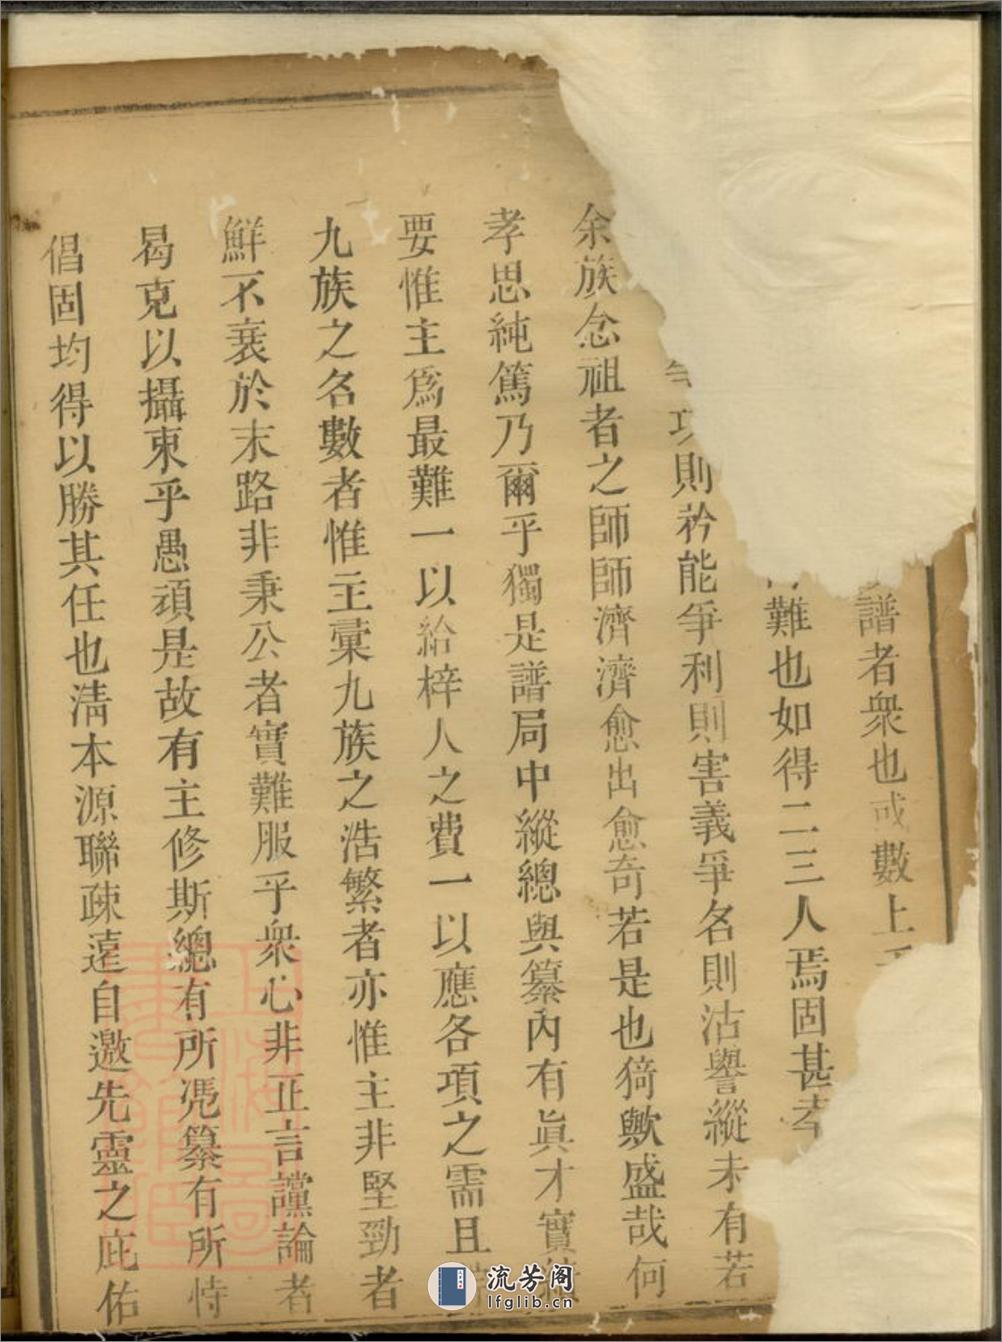 譜者衆也或數上
難也如得二三人焉固甚幸
功則矜能爭利則害義爭名則沽譽縱未有若
余族念祖者之師師濟濟愈出愈奇若是也猗歟盛哉何
孝思純篤乃爾乎獨是譜局中縱總與纂內有眞才實
要惟主爲最難一以給梓人之費一以應各項之需且
九族之名數者惟主彙九族之浩繁者亦惟主非堅勁者
鮮不衰於末路非秉公者實難服乎衆心非正言讜論者
曷克以攝束乎愚頑是故有主修斯總有所凭纂有所恃
倡固均得以勝其任也淸本源聯疎遠自邀先靈之庇佑
流芳阁
lfglib.cn